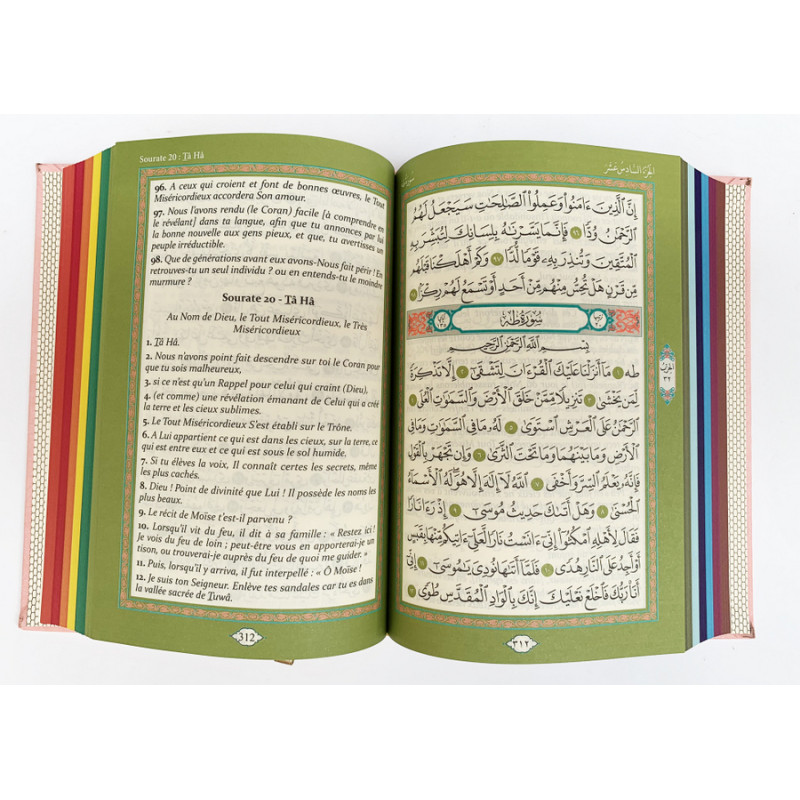 Sourate 20 : Tâ Hâ
96. A ceux qui croient et font de bonnes œuvres, le Tout
Miséricordieux accordera Son amour.
97. Nous l'avons rendu (le Coran) facile [à comprendre en
le révélant] dans ta langue, afin que tu annonces par lui
la bonne nouvelle aux gens pieux, et que, tu avertisses un
peuple irréductible.
98. Que de générations avant eux avons-Nous fait périr ! En
retrouves-tu un seul individu ? ou en entends-tu le moindre
murmure ?
Sourate 20 - Tâ Hâ
Au Nom de Dieu, le Tout Miséricordieux, le Très
Miséricordieux
1. Tâ Hâ.
2. Nous n'avons point fait descendre sur toi le Coran pour
que tu sois malheureux,
3. si ce n'est qu'un Rappel pour celui qui craint (Dieu),
4. (et comme) une révélation émanant de Celui qui a créé
la terre et les cieux sublimes.
5. Le Tout Miséricordieux S'est établi sur le Trône.
6. A Lui appartient ce qui est dans les cieux, sur la terre, ce
qui est entre eux et ce qui est sous le sol humide.
7. Si tu élèves la voix, Il connaît certes les secrets, même
les plus cachés.
8. Dieu ! Point de divinité que Lui ! Il possède les noms les
plus beaux.
9. Le récit de Moïse t'est-il parvenu ?
10. Lorsqu'il vit du feu, il dit à sa famille : « Restez ici !
Je vois du feu de loin ; peut-être vous en apporterai-je un
tison, ou trouverai-je auprès du feu de quoi me guider. »
11. Puis, lorsqu'il y arriva, il fut interpellé : « Ô Moïse !
12. Je suis ton Seigneur. Enlève tes sandales car tu es dans
la vallée sacrée de Tuwâ.
312
الجزء السادس عشر
إِنَّ ٱلَّذِينَ ءَامَنُوا۟ وَعَمِلُوا۟ ٱلصَّٰلِحَٰتِ سَيَجْعَلُ لَهُمُ
ٱلرَّحْمَٰنُ وُدًّا ٩٦ فَإِنَّمَا يَسَّرْنَٰهُ بِلِسَانِكَ لِتُبَشِّرَ بِهِ
ٱلْمُتَّقِينَ وَتُنذِرَ بِهِۦ قَوْمًا لُّدًّا ٩٧ وَكَمْ أَهْلَكْنَا قَبْلَهُم
مِّن قَرْنٍ هَلْ تُحِسُّ مِنْهُم مِّنْ أَحَدٍ أَوْ تَسْمَعُ لَهُمْ رِكْزًۢا ٩٨
سُورَةُ طه
بِسْمِ ٱللَّهِ ٱلرَّحْمَٰنِ ٱلرَّحِيمِ
طه ١ مَآ أَنزَلْنَا عَلَيْكَ ٱلْقُرْءَانَ لِتَشْقَىٰٓ ٢ إِلَّا تَذْكِرَةً
لِّمَن يَخْشَىٰ ٣ تَنزِيلًا مِّمَّنْ خَلَقَ ٱلْأَرْضَ وَٱلسَّمَٰوَٰتِ ٱلْعُلَى ٤
ٱلرَّحْمَٰنُ عَلَى ٱلْعَرْشِ ٱسْتَوَىٰ ٥ لَهُۥ مَا فِى ٱلسَّمَٰوَٰتِ وَمَا فِى
ٱلْأَرْضِ وَمَا بَيْنَهُمَا وَمَا تَحْتَ ٱلثَّرَىٰ ٦ وَإِن تَجْهَرْ بِٱلْقَوْلِ
فَإِنَّهُۥ يَعْلَمُ ٱلسِّرَّ وَأَخْفَى ٧ ٱللَّهُ لَآ إِلَٰهَ إِلَّا هُوَ لَهُ ٱلْأَسْمَآءُ
ٱلْحُسْنَىٰ ٨ وَهَلْ أَتَىٰكَ حَدِيثُ مُوسَىٰٓ ٩ إِذْ رَءَا نَارًا
فَقَالَ لِأَهْلِهِ ٱمْكُثُوٓا۟ إِنِّىٓ ءَانَسْتُ نَارًا لَّعَلِّىٓ ءَاتِيكُم مِّنْهَا بِقَبَسٍ
أَوْ أَجِدُ عَلَى ٱلنَّارِ هُدًى ١٠ فَلَمَّآ أَتَىٰهَا نُودِىَ يَٰمُوسَىٰٓ ١١ إِنِّىٓ
أَنَا۠ رَبُّكَ فَٱخْلَعْ نَعْلَيْكَ إِنَّكَ بِٱلْوَادِ ٱلْمُقَدَّسِ طُوًى ١٢
الحزب
٣٢
٣١٢